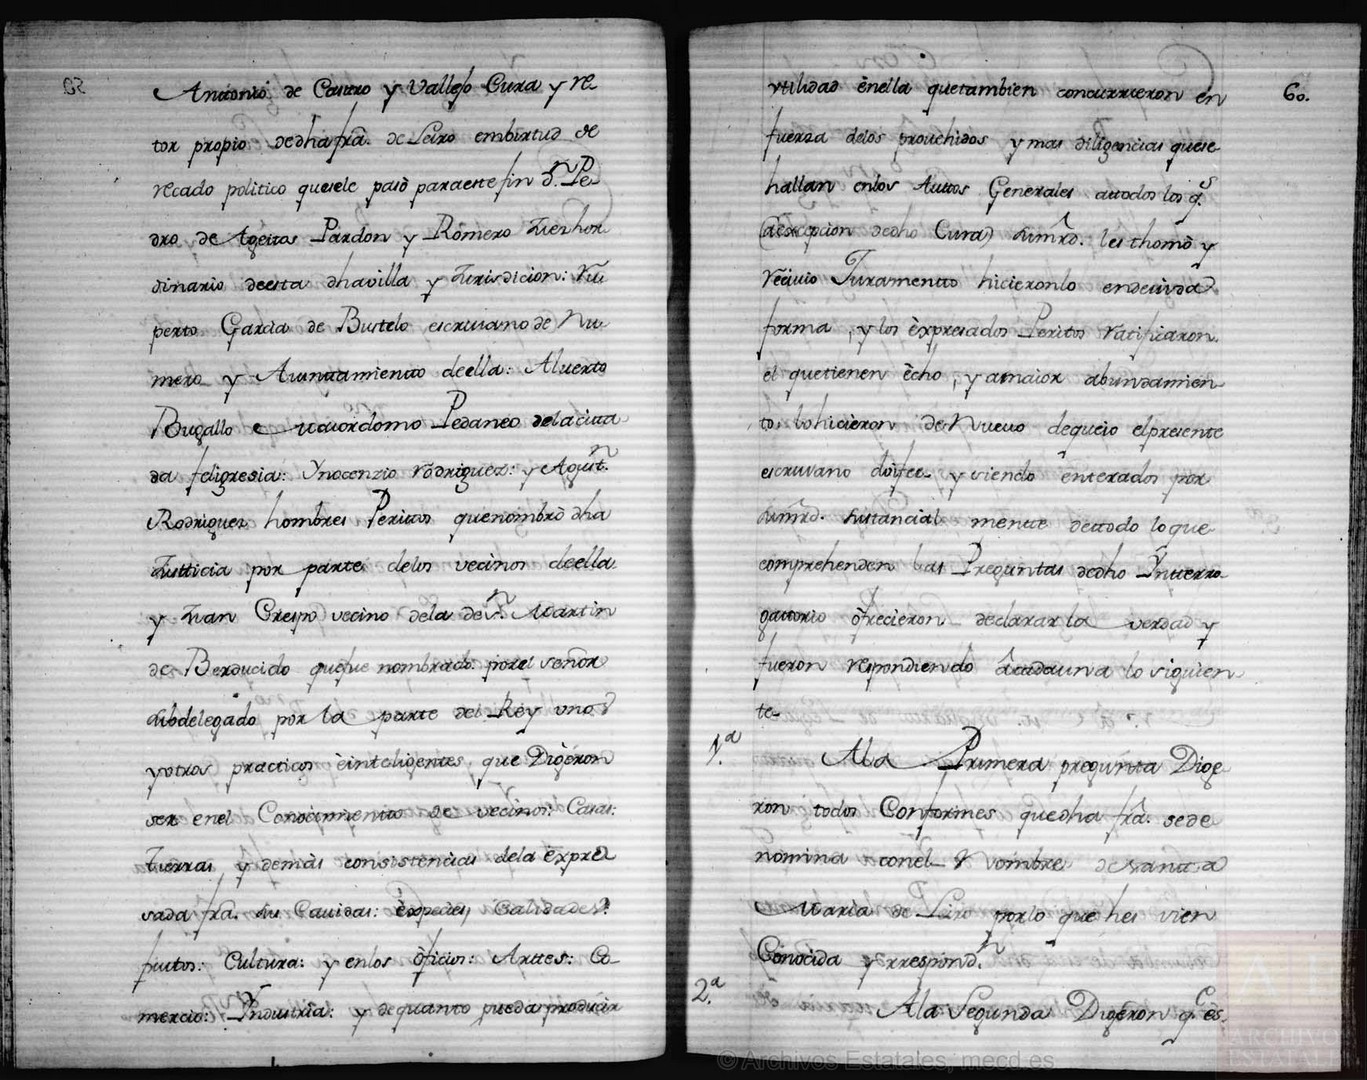 Antonio de Castro y Vallejo Cura y Re-
tor propio dedha fra. de Leiro embirtud de
recado politico quesele pasò paraeste fin dn. Pe-
dro de Ageitos Pardon y Romero Juez hor-
dinario deesta dhavilla y Jurisdicion: Ru-
perto Garcia de Bustelo escrivano de Nu-
mero y Aiuntamiento deella: Alverto
Bugallo Maiordomo Pedaneo delacita-
da feligresia: Ynocenzio Rodriguez: y Agutn.
Rodriguez hombres Peritos quenombrò dha
Justicia por parte delos vecinos deella
y Juan Crespo vecino dela de Sn. Martin
de Berducido quefue nombrado porel señor
subdelegado por la parte del Rey unos
yotros practicos èinteligentes, que Dijeron
ser enel Conocimiento de vecinos: Casas:
Tierras y demàs consistencias dela èxpre
sada fra. sus Cavidas: èspecies, Calidades:
frutos: Cultura: y enlos òficios: Artes: Co-
mercio: Yndustria: y dequanto pueda producir
60.
vtilidad ènella quetambien concurrieron en
fuerza delos prouehidos y mas diligencias quese
hallan enlos Autos Generales atodos los qs.
(àescepcion dedho Cura) sumrd. les thomò y
Recivio Juramento hicieronlo endevida
forma, y los èxpresados Peritos Ratificaron
el quetienen ècho, y amaior abundamien
to, lohicieron deNuevo dequeio elpresente
escrivano doifee y siendo enterados por
sumrd. sustancial mente detodo loque
comprehenden las Preguntas dedho Ynterro-
gatorio òfrecieron declarar la verdad y
fueron respondiendo àcadauna lo siguien
te-
1.a
Ala Primera pregunta Dige-
ron todos Conformes quedha fra. sede
nomina conel Nombre desanta
Maria de Leiro porlo que hes vien
Conocida yrrespondn.
2.a
Ala Segunda Digeron qe. es
© Archivos Estatales, mecd.es
ARCHIVOS
ESTATALES